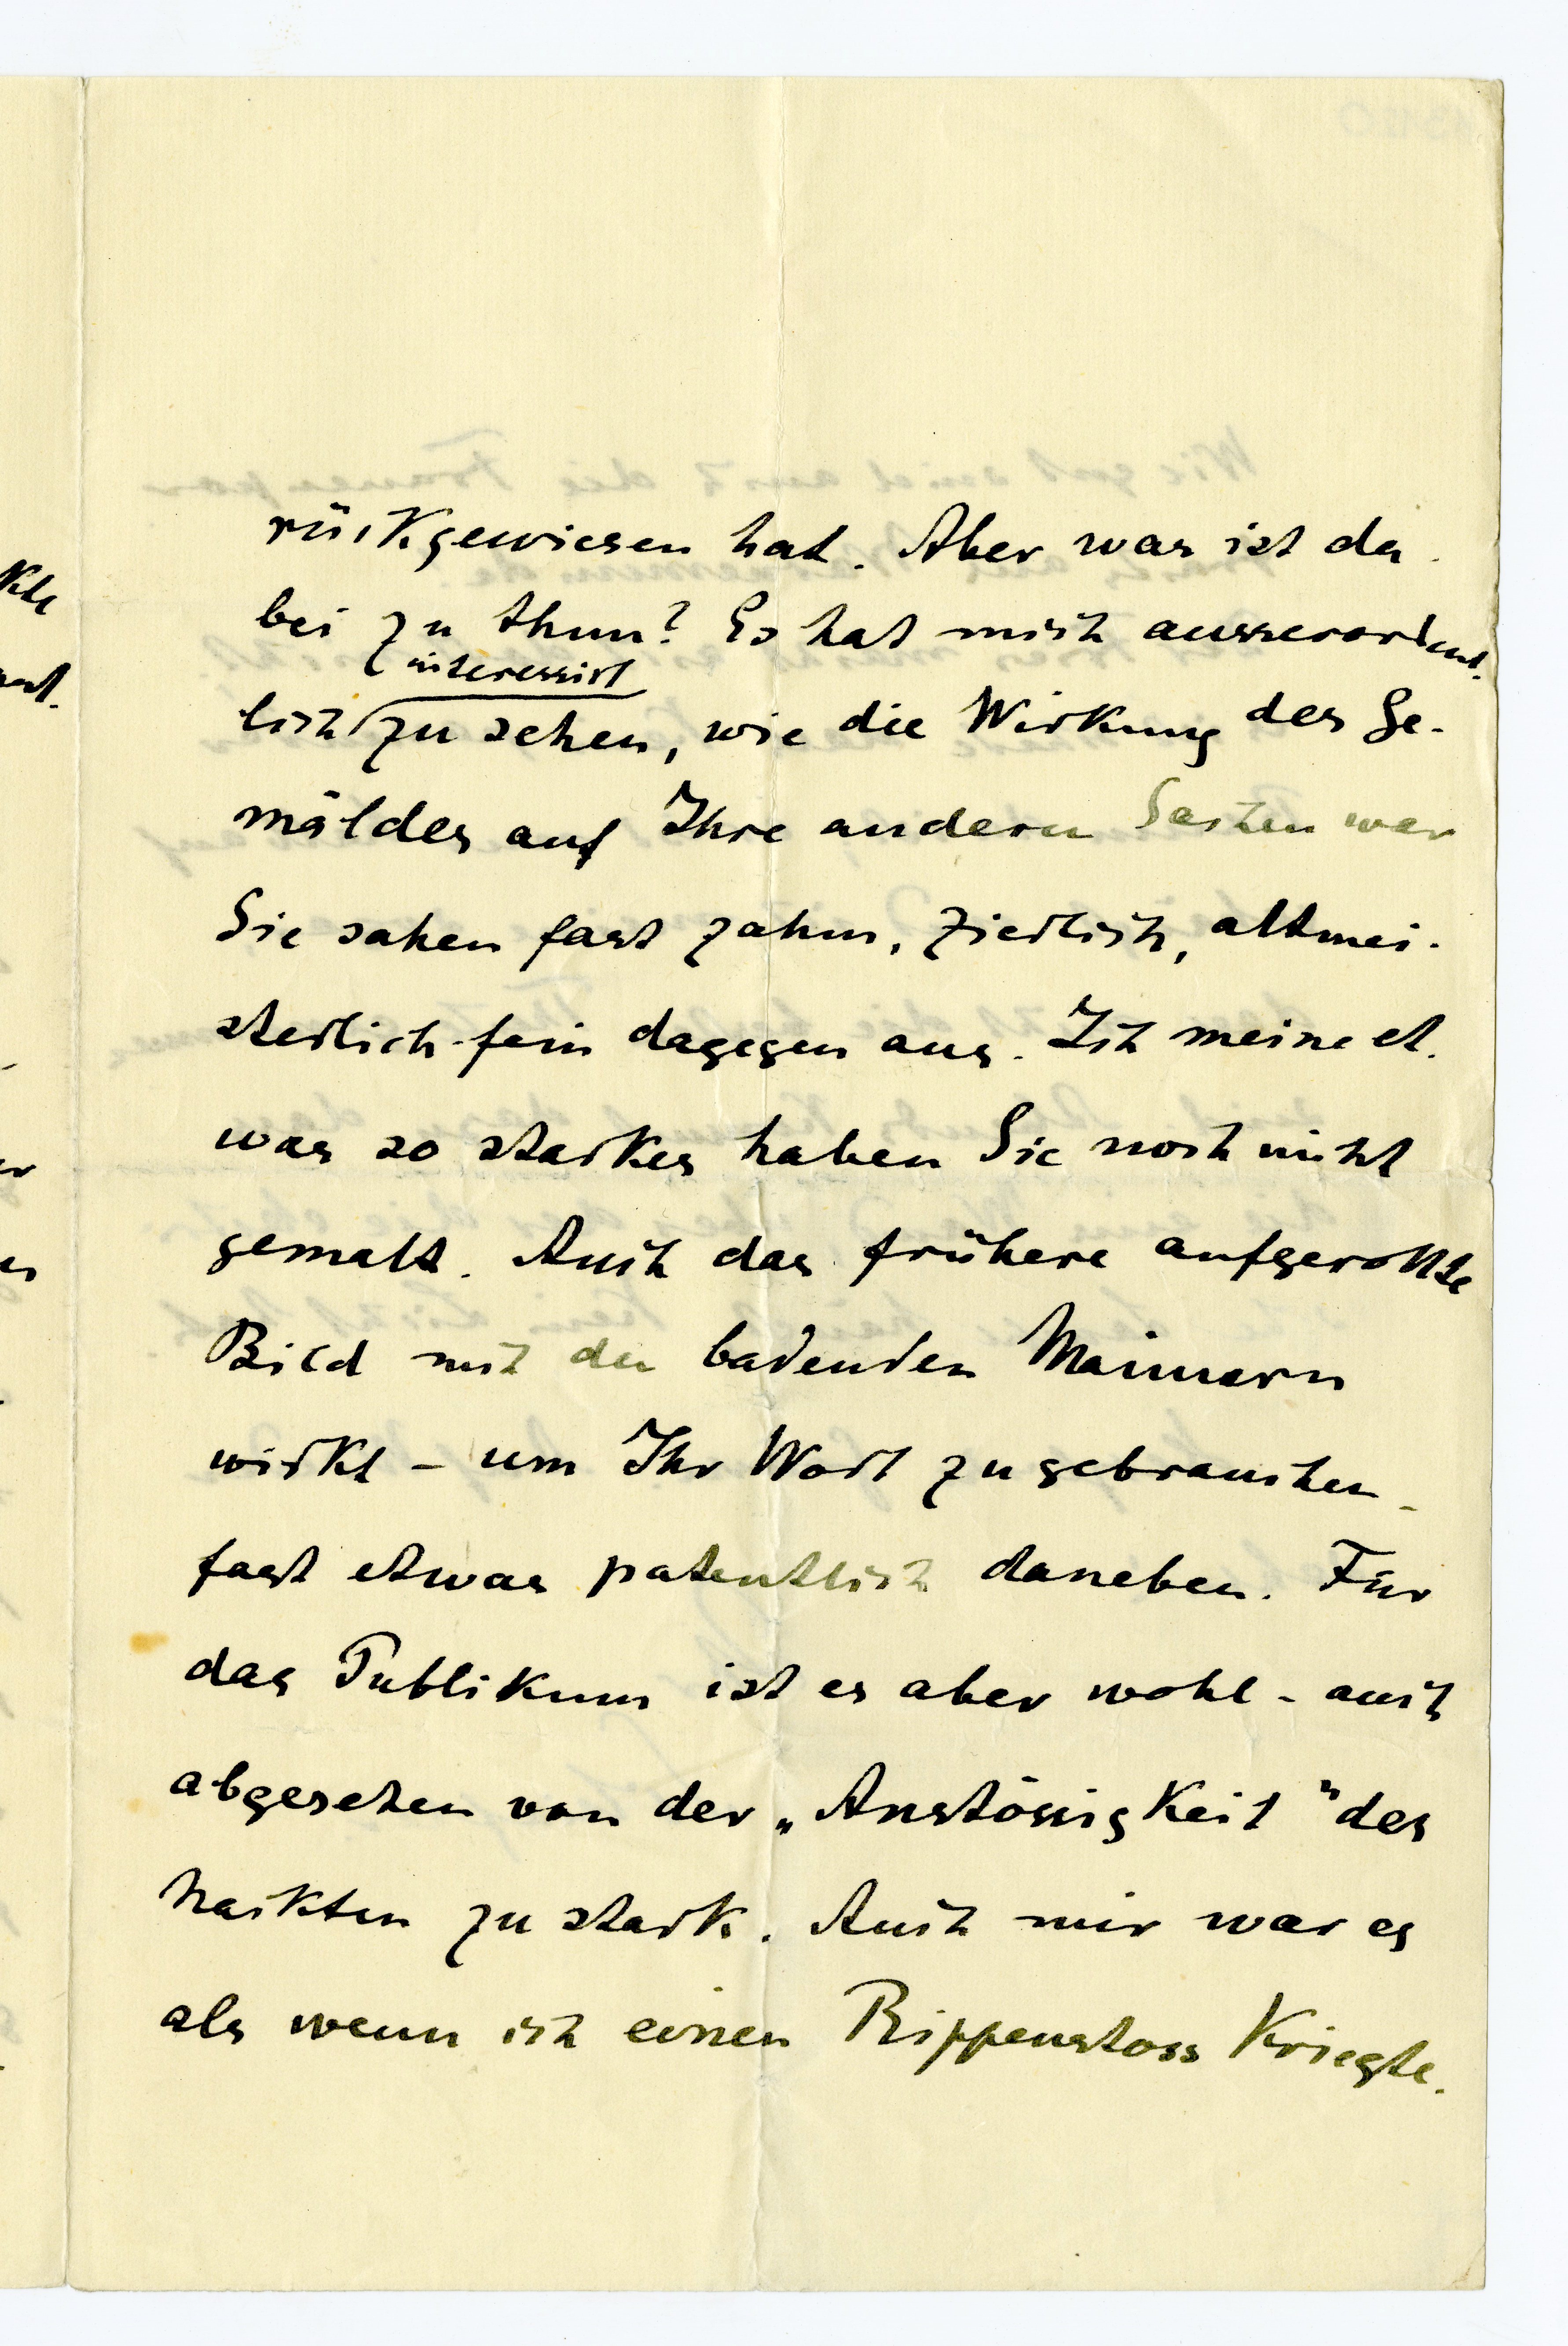 rückgewiesen hat. Aber was ist da
bei zu thun? Es hat mich ausserordent-
interessirt
lich zu sehen, wie die Wirkung des Ge-
mäldes auf Ihre andern Sachen war
Sie sahen fast zahm, zierlich, altmei-
sterlich-fein dagegen aus. Ich meine et-
was so starkes haben Sie noch nicht
gemalt. Auch das frühere aufgerollte
Bild mit den badenden Männern
wirkt - um Ihr Wort zu gebrauchen -
fast etwas patentlich daneben. Für
das Publikum ist es aber wohl - auch
abgesehen von der „Anstössigkeit" des
Nackten zu stark. Auch mir war es
als wenn ich einen Rippenstoss kriegte.